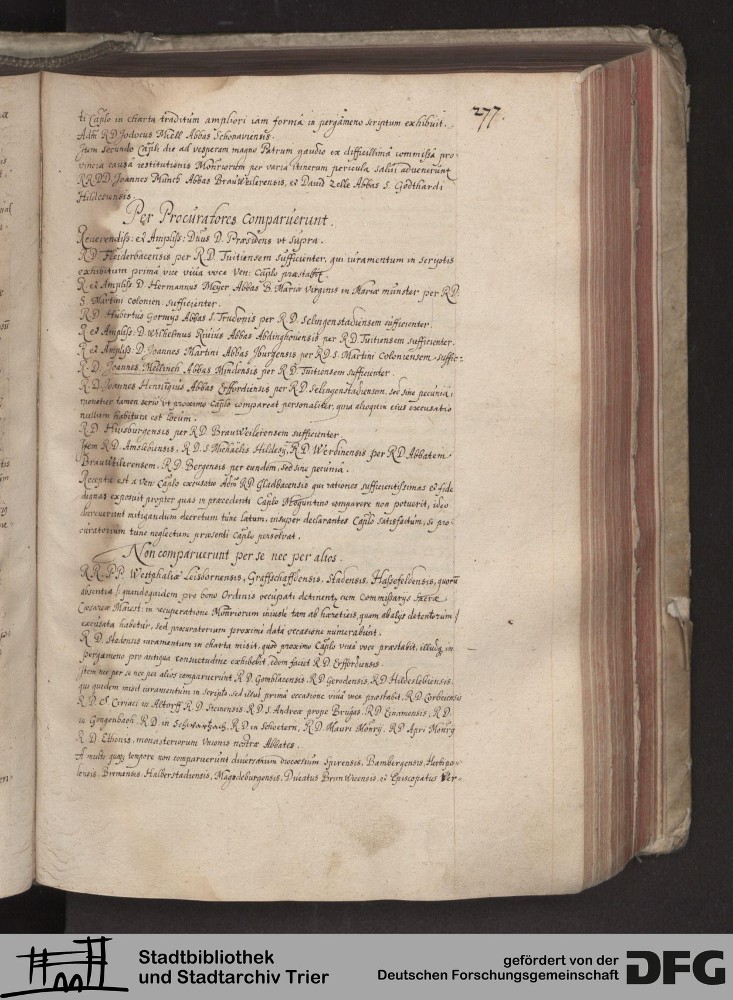 277.
ti Caplo in charta traditum ampliori iam forma in pergameno scriptum exhibuit.
Adm. R.D. Jodocus Abbas Schonaviensis.
Item secundo Capli die ad vesperam magno Patrum gaudio ex difficillima commissa pro-
vincia causa restitutionis Monriorum per varia itinerum pericula salui aduenerunt
RRDD. Joannes Münch Abbas BrauWeilerensis, et Dauid Zelle Abbas S. Godthardi
Hildesiensis.
Per Procuratores Comparuerunt.
Reverendiss: et Ampliss: Dnus D. Præsidens vt supra.
R.D. per R.D. Tuitiensem sufficienter, qui iuramentum in scriptis
exhibitum prima vice viua voce Ven: Caplo præstabit.
R. et Ampliss. D. Hermannus Meyer Abbas B. Mariæ Virginis in Mariæ münster per R.D.
S. Martini Colonien. sufficienter.
R.D. Hubertus Abbas S. Trudonis per R.D. Selingenstadiensem sufficienter.
R. et Ampliss: D. Wilhelmus Abbas Abdinghouiensis per R.D. Tuitiensem sufficienter.
R. et Ampliss: D. Joannes Martini Abbas Jburgensis per R.D. S. Martini Coloniensem suffic:
R.D. Joannes Abbas Mindensis per R.D. Tuitiensem sufficienter.
R.D. Joannes Henningius Abbas Erffordiensis per R.D. Selingenstadiensem, sed sine pecunia;
monetur tamen serio vt proximo Caplo compareat personaliter, quia alioquin eius excusatio
nullum habitura est locum.
R.D. Huisburgensis per R.D. BrauWeilerensem sufficienter.
Item R.D. Amslebiensis, R.D. S. Michaelis Hildesij, R.D. Werdinensis per R.D. Abbatem
BrauWeilerensem. R.D. Bergensis per eundem, sed sine pecunia.
Recepta est a Ven: Caplo excusatio Adm. R.D. Gladbacensis qui rationes sufficientissimas et fide
dignas exposuit propter quas in præcedenti Caplo Moguntino comparere non potuerit, ideo
decreuerunt mitigandum decretum tunc latum, insuper declarantes Caplo satisfactum, si pro-
curatorium tunc neglectum præsenti Caplo persoluat.
Non comparuerunt per se nec per alios.
R.R.P.P. Westphaliæ Leisbornensis, Graffschaffdensis, Stadensis, Hassefeldensis, quorum
absentia quandoquidem pro bono Ordinis occupati detinentur cum Commissarijs Sacræ
Cæsareæ Maiest: in recuperatione Monriorum iniuste tam ab hæreticis, quam ab alijs detentorum
excusata habetur, sed procuratorium proxima data occasione numerabunt.
R.D. Stadensis iuramentum in charta misit, quod proximo Caplo viua voce præstabit, illudq. in
pergameno pro antiqua consuetudine exhibebit, idem faciet R.D. Erffordensis.
Item nec per se nec per alios comparuerunt R.D. Gemblacensis, R.D. Gerodensis, R.D. Hildeslebiensis,
qui quidem misit iuramentum in scriptis sed illud prima occasione viua voce præstabit. R.D. Corbeiensis
R.D. S. Ciriaci in Altorff R.D. Steinensis R.D. S. Andreæ prope Brugas. R.D. Einamensis, R.D.
in Gengenbach. R.D. in Schwartzach, R.D. in Schuetern, R.D. Mauri Monrij, R.D. Apri Monrij
R.D. Ethonis, monasteriorum Vnionis nostræ Abbates.
A multo quoq. tempore non comparuerunt diuersarum dioecesium Spirensis, Bambergensis, Herbipo-
lensis, Bremensis, Halberstadiensis, Magdeburgensis, Ducatus BrunWicensis, et Episcopatus Ver-
Stadtbibliothek
und Stadtarchiv Trier
gefördert von der
Deutschen Forschungsgemeinschaft
DFG